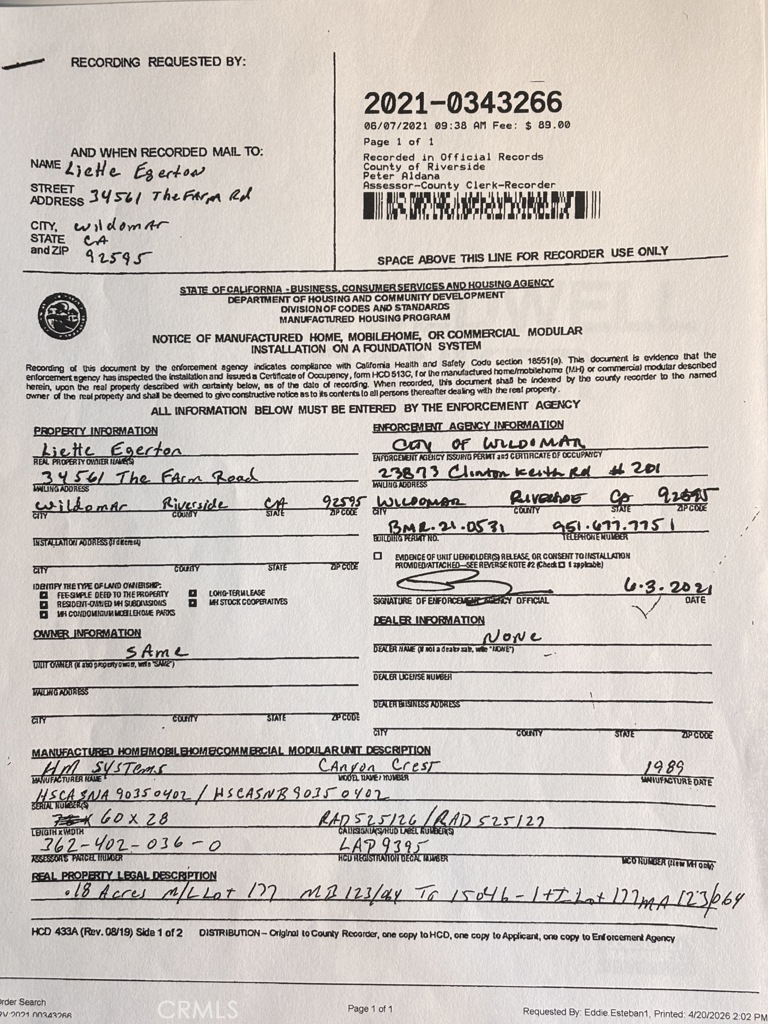 RECORDING REQUESTED BY:
AND WHEN RECORDED MAIL TO:
NAME Liette Egerton
STREET ADDRESS 34561 The Farm Rd
CITY, Wildomar
STATE CA
and ZIP 92595
2021-0343266
06/07/2021 09:38 AM Fee: $ 89.00
Page 1 of 1
Recorded in Official Records
County of Riverside
Peter Aldana
Assessor-County Clerk-Recorder
SPACE ABOVE THIS LINE FOR RECORDER USE ONLY
STATE OF CALIFORNIA - BUSINESS, CONSUMER SERVICES AND HOUSING AGENCY
DEPARTMENT OF HOUSING AND COMMUNITY DEVELOPMENT
DIVISION OF CODES AND STANDARDS
MANUFACTURED HOUSING PROGRAM
NOTICE OF MANUFACTURED HOME, MOBILEHOME, OR COMMERCIAL MODULAR
INSTALLATION ON A FOUNDATION SYSTEM
Recording of this document by the enforcement agency indicates compliance with California Health and Safety Code section 18551(a). This document is evidence that the
enforcement agency has inspected the installation and issued a Certificate of Occupancy, form HCD 513C, for the manufactured home/mobilehome (MH) or commercial modular described
herein, upon the real property described with certainty below, as of the date of recording. When recorded, this document shall be indexed by the county recorder to the named
owner of the real property and shall be deemed to give constructive notice as to its contents to all persons thereafter dealing with the real property.
ALL INFORMATION BELOW MUST BE ENTERED BY THE ENFORCEMENT AGENCY
PROPERTY INFORMATION
Liette Egerton
REAL PROPERTY OWNER NAME(S)
34561 The Farm Road
MAILING ADDRESS
Wildomar Riverside CA 92595
CITY COUNTY STATE ZIP CODE
INSTALLATION ADDRESS (if different)
CITY COUNTY STATE ZIP CODE
IDENTIFY THE TYPE OF LAND OWNERSHIP:
FEE-SIMPLE DEED TO THE PROPERTY LONG-TERM LEASE
RESIDENT-OWNED MH SUBDIVISIONS MH STOCK COOPERATIVES
MH CONDOMINIUM MOBILEHOME PARKS
OWNER INFORMATION
SAME
UNIT OWNER (if also property owner, write "SAME")
MAILING ADDRESS
CITY COUNTY STATE ZIP CODE
ENFORCEMENT AGENCY INFORMATION
CITY OF WILDOMAR
ENFORCEMENT AGENCY ISSUING PERMIT and CERTIFICATE OF OCCUPANCY
23873 Clinton Keith Rd # 201
MAILING ADDRESS
WILDOMAR RIVERSIDE CA 92595
CITY COUNTY STATE ZIP CODE
BMR-21-0531 951.677.7751
BUILDING PERMIT NO. TELEPHONE NUMBER
EVIDENCE OF UNIT LIENHOLDER(S) RELEASE, OR CONSENT TO INSTALLATION
PROVIDED/ATTACHED—SEE REVERSE NOTE #2 (Check if applicable)
6.3.2021
SIGNATURE OF ENFORCEMENT AGENCY OFFICIAL DATE
DEALER INFORMATION
NONE
DEALER NAME (if not a dealer sale, write "NONE")
DEALER LICENSE NUMBER
DEALER BUSINESS ADDRESS
CITY COUNTY STATE ZIP CODE
MANUFACTURED HOME/MOBILEHOME/COMMERCIAL MODULAR UNIT DESCRIPTION
HM Systems Canyon Crest 1989
MANUFACTURER NAME MODEL NAME/NUMBER MANUFACTURE DATE
HSCASNA90350402/HSCASNB90350402
SERIAL NUMBER(S)
60 x 28 RAD525126/RAD525127
LENGTH x WIDTH CA INSIGNIA(S)/HUD LABEL NUMBER(S)
362-402-036-0 LAP9395
ASSESSOR'S PARCEL NUMBER HCD REGISTRATION DECAL NUMBER MCO NUMBER (New MH only)
REAL PROPERTY LEGAL DESCRIPTION
.18 Acres M/L Lot 177 MB 123/064 Tr 15046-1 Lot 177 MA 123/064
HCD 433A (Rev. 08/19) Side 1 of 2 DISTRIBUTION – Original to County Recorder, one copy to HCD, one copy to Applicant, one copy to Enforcement Agency
Order Search
RV 2021 00343266
CRMLS
Page 1 of 1
Requested By: Eddie.Esteban1, Printed: 4/20/2026 2:02 PM